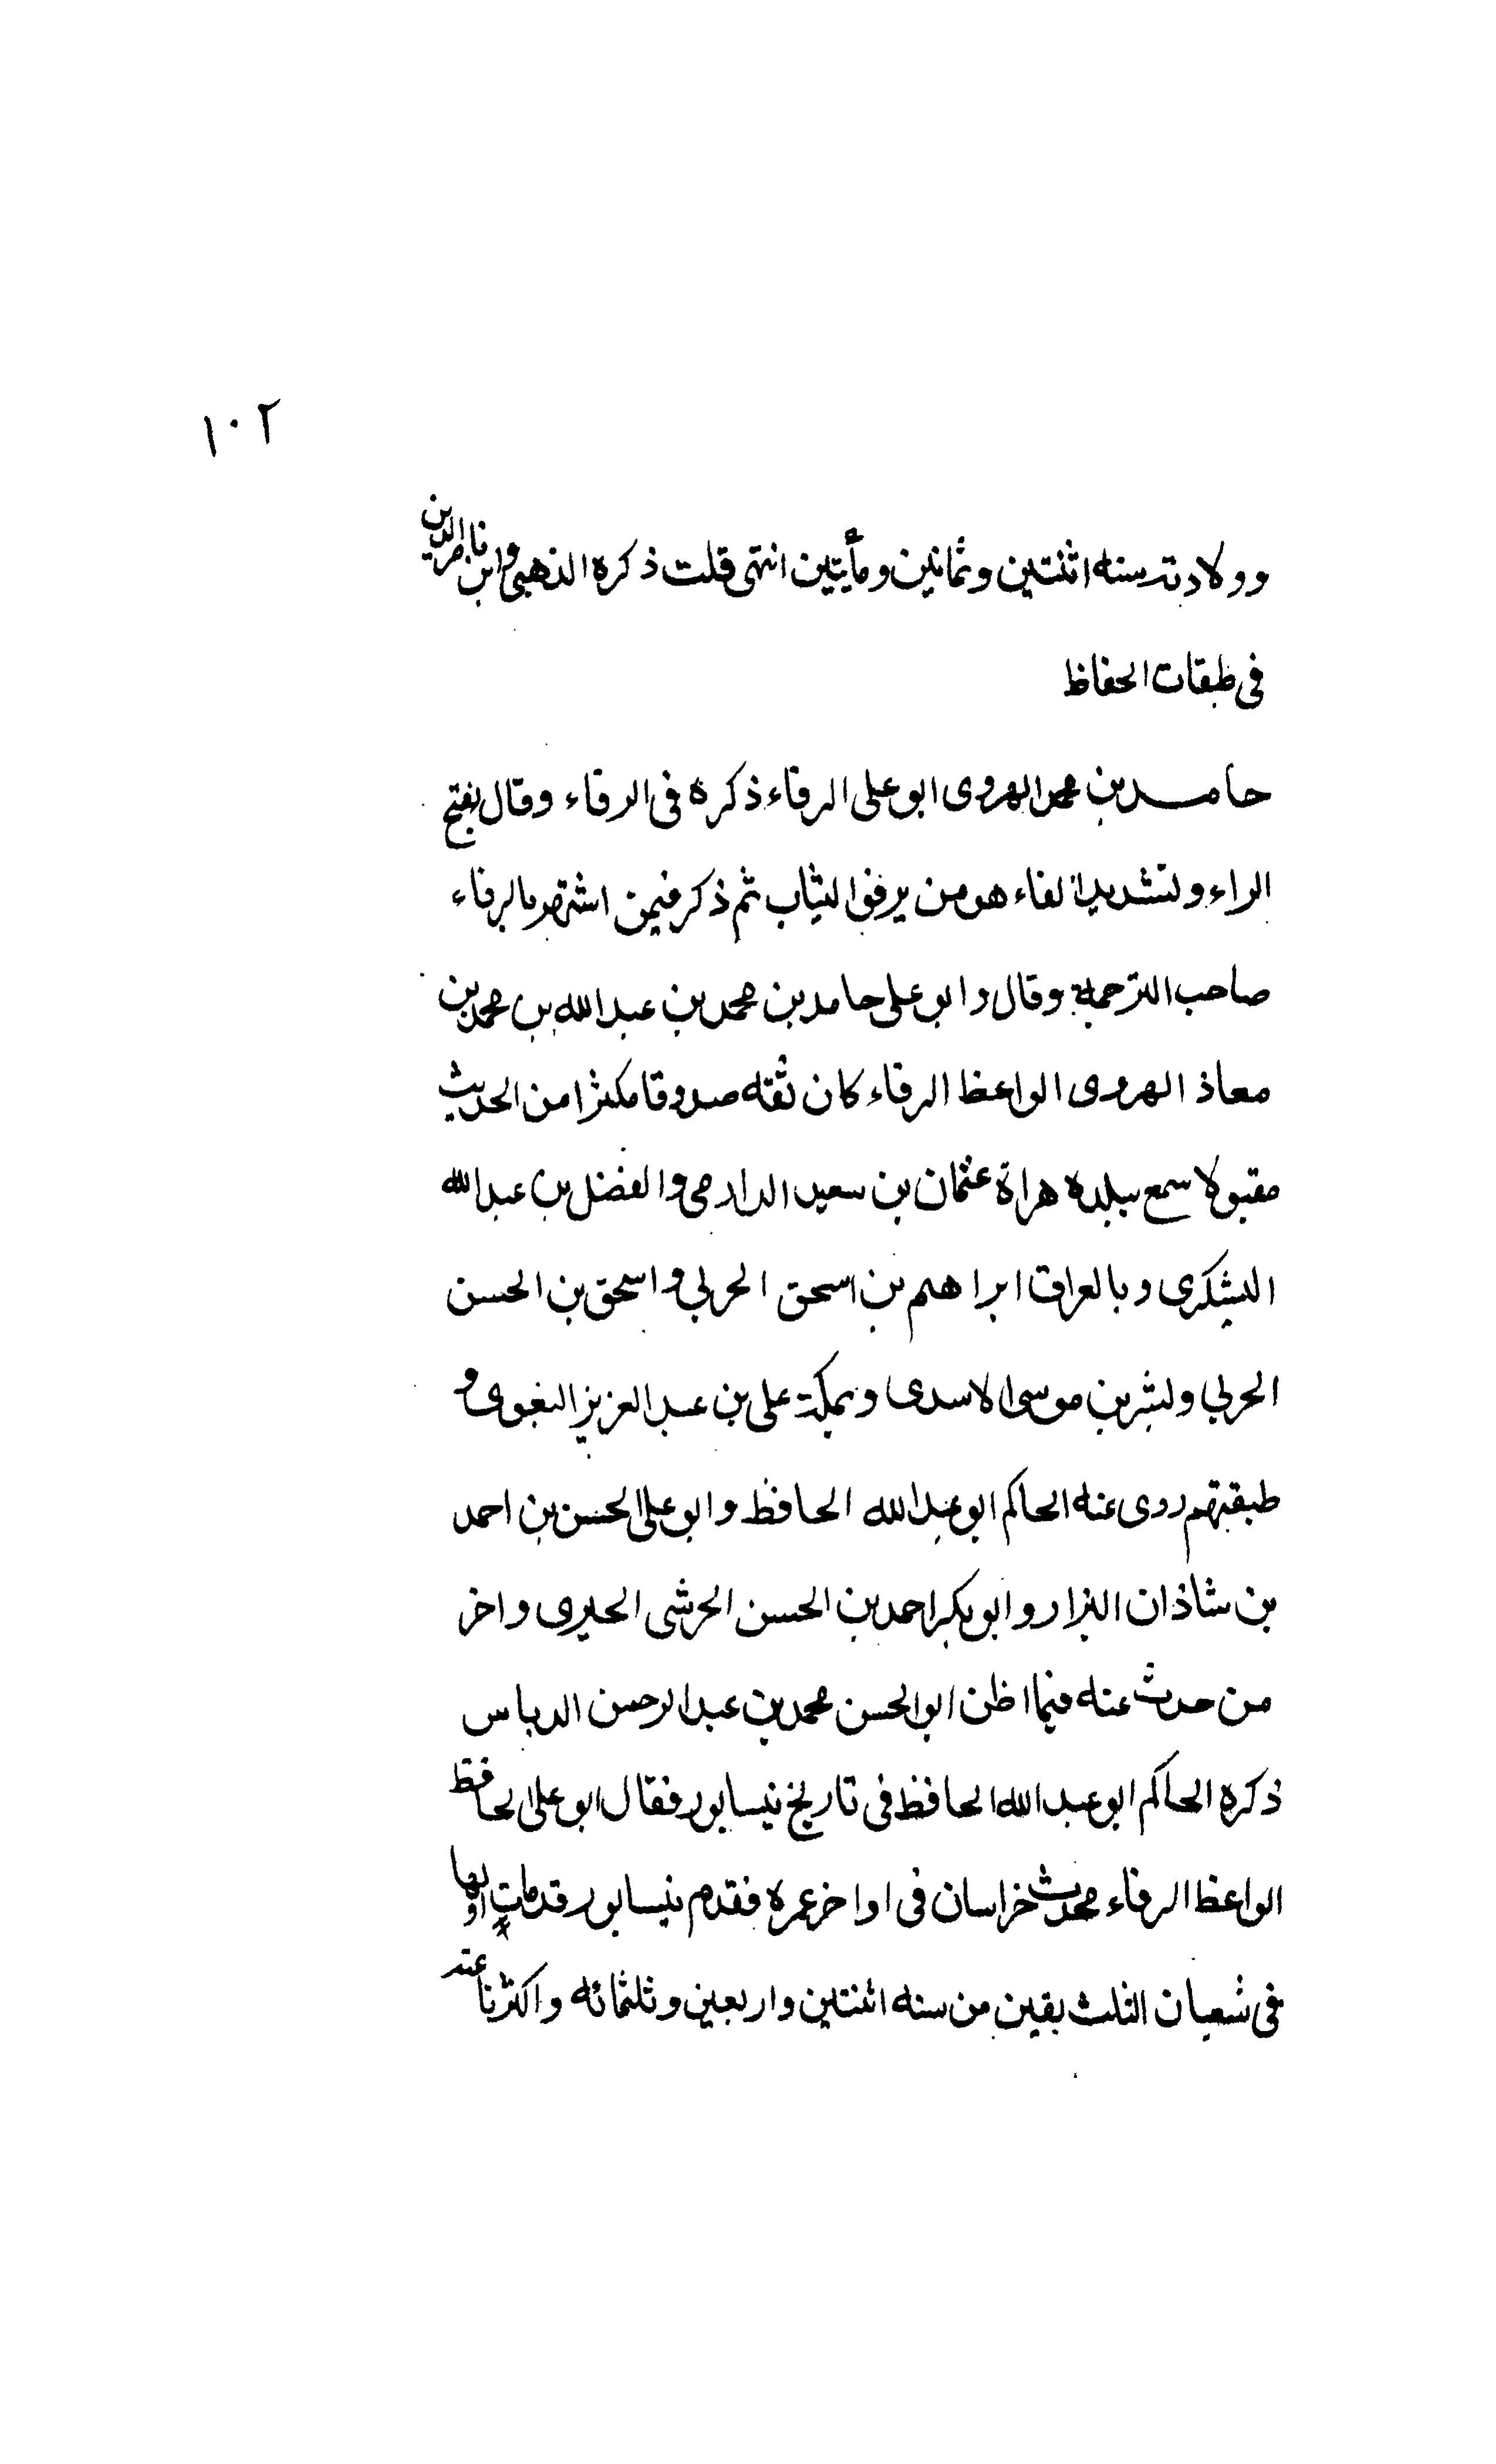 ١٠٢
وولادته سنه اثنتين وثمانين ومأيتين انتهى قلت ذكره الذهبي وابن ناصر الدين
فى طبقات الحفاظ
حامد بن محمد الهروى ابو على الرفاء ذكره فى الرفاء وقال بفتح
الراء وتشديد الفاء هو من يرفو الثياب ثم ذكر فيمن اشتهر بالرفاء
صاحب الترجمة وقال وابو على حامد بن محمد بن عبد الله بن محمد بن
معاذ الهروى الواعظ الرفاء كان ثقه صدوقا مكثرا من الحديث
مقبولا سمع ببلده هراة عثمان بن سعيد الدارمى والفضل بن عبد الله
اليشكرى وبالعراق ابراهيم بن اسحق الحربي واسحق بن الحسن
الحربي وبشر بن موسى الاسدى وبمكة على بن عبد العزيز البغوى و
طبقتهم روى عنه الحاكم ابو عبد الله الحافظ وابو على الحسن بن احمد
بن شاذان البزار وابو بكر احمد بن الحسن الحرشى الحيرى واخر
من حدث عنه فيما اظن ابو الحسن محمد بن عبد الرحمن الدباس
ذكره الحاكم ابو عبد الله الحافظ فى تاريخ نيسابور فقال ابو على الحافظ
الواعظ الرفاء محدث خراسان فى اواخر عمره فقدم نيسابور قدمات اولها
فى شعبان الثلث بقين من سنه اثنتين واربعين وثلثمائه واكثرنا عنه